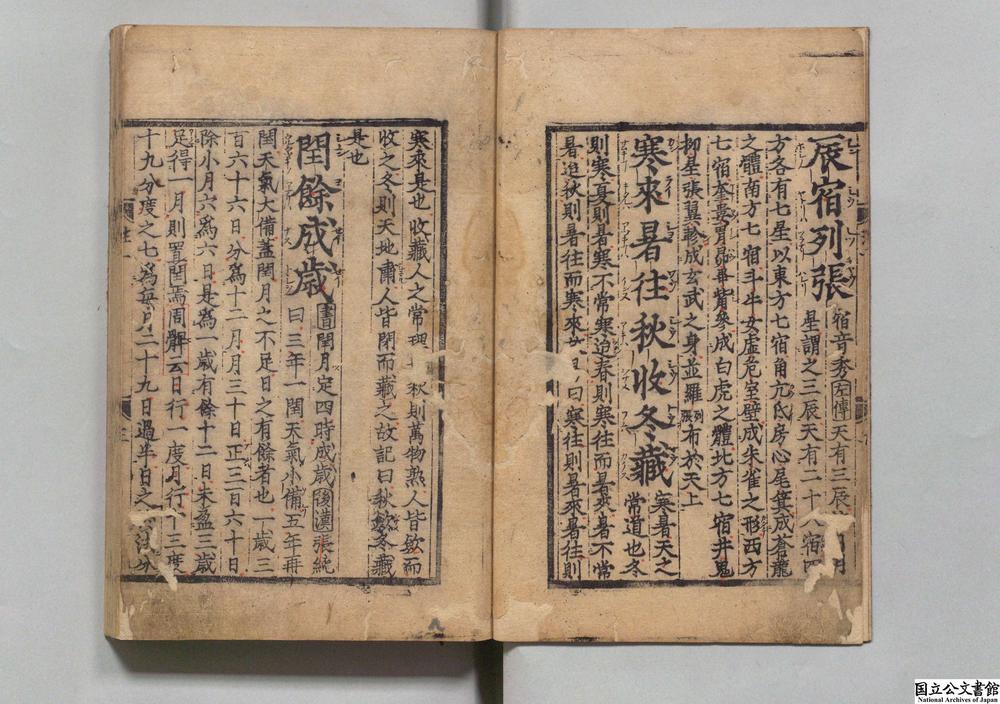 辰宿列張 宿音秀左傳天有三辰
星謂之三辰天有二十八宿四
方各有七星以東方七宿角亢氐房心尾箕成蒼龍
之體南方七宿斗牛女虛危室壁成朱雀之形西方
七宿奎婁胃昴畢觜參成白虎之體北方七宿井鬼
柳星張翼軫成玄武之身並羅列張布於天上
寒來暑往秋收冬藏 寒暑天之
常道也冬
則寒夏則暑寒不常寒迨春則寒往而暑來暑不常
暑迨秋則暑往而寒來 曰寒往則暑來暑往則
寒來是也收藏人之常理 秋則萬物熟人皆斂而
收之冬則天地肅人皆閉而藏之故記曰秋斂冬藏
是也
閏餘成歲 書閏月定四時成歲後漢張純
曰三年一閏天氣小備五年再
閏天氣大備蓋閏月之不足日之有餘者也一歲三
百六十六日分爲十二月月三十日正三日六十日
除小月六爲六日是爲一歲有餘十二日未盈三歲
足得一月則置閏焉周髀云日行一度月行十三度
十九分度之七爲每月二十九日過半日之
国立公文書館
National Archives of Japan